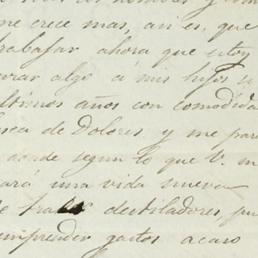 me crece mas, asi es, que
trabajar ahora que estoy
algo á mis hijos
ultimos años con comodida
de Dolores y me pare
donde segun lo que V. m
ará una vida nueva
destiladores, pu
emprender gastos acaso